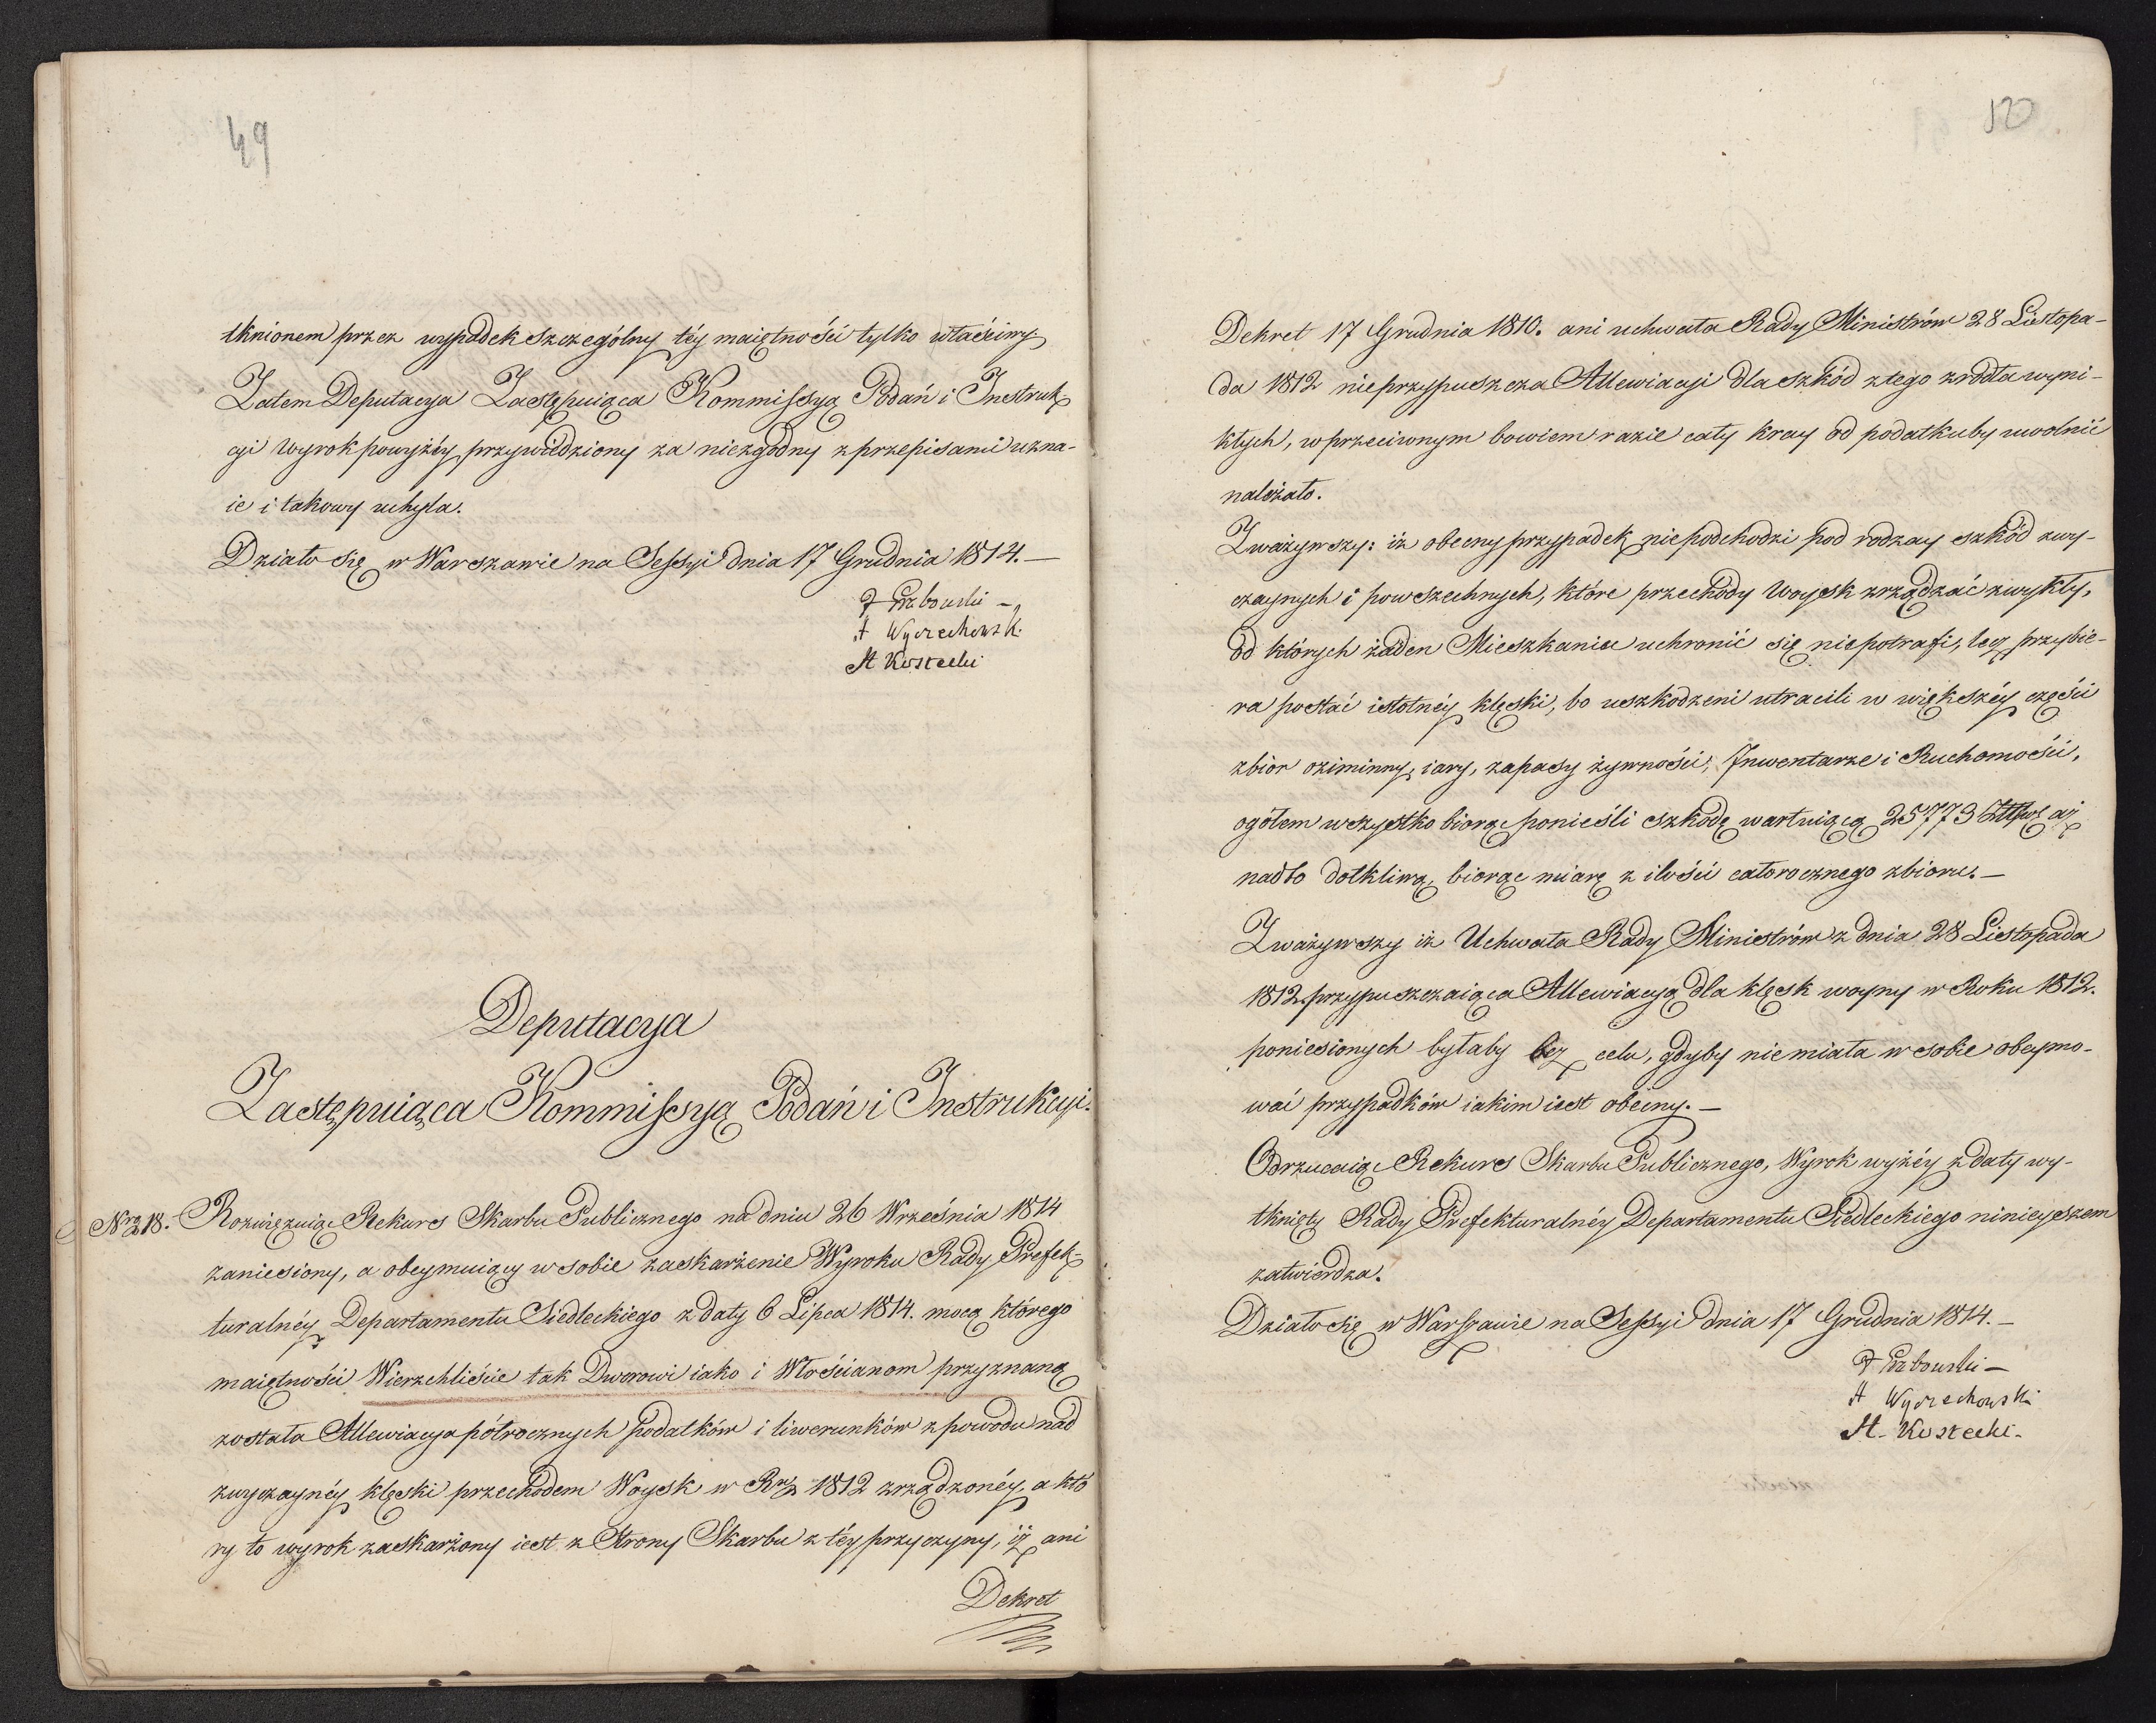 49
tknionem przez wypadek szczególny téy maiętności tylko właściwy.
Zatem Deputacya Zastępuiąca Kommissyą Podań i Instruk-
cyi Wyrok powyżéy przywiedziony za niezgodny z przepisami uzna-
ie i takowy uchyla.
Działo się w Warszawie na Sessyi dnia 17 Grudnia 1814.—
A Wyczechowsk.
St Kostecki
Deputacya
Zastępuiąca Kommissyą Podań i Instrukcyi.
Nro 218. Rozwięzuiąc Rekurs Skarbu Publicznego na dniu 26 Września 1814
zaniesiony, a obeymuiący w sobie zaskarżenie Wyroku Rady Prefek-
turalnéy Departamentu Siedleckiego z daty 6 Lipca 1814. mocą którego
maiętności Wierzchliście tak Dworowi iako i Włościanom przyznaną
została Allewiacya półrocznych podatków i liwerunków z powodu nad
zwyczaynéy klęski przechodem Woysk w Rku 1812 zrządzonéy, a któ
ry to wyrok zaskarżony iest z Strony Skarbu z téy przyczyny, iż ani
Dekret
50
Dekret 17 Grudnia 1810. ani uchwała Rady Ministrów 28 Listopa-
da 1812 nieprzypuszcza Allewiacyi dla szkód z tego zrodła wyni-
kłych, w przeciwnym bowiem razie cały kray od podatkuby uwolnić
należało.
Zważywszy: iż obecny przypadek niepodchodzi pod rodzay szkód zwy-
czaynych i powszechnych, które przechody Woysk zrządzać zwykły,
od których żaden Mieszkaniec uchronić się niepotrafi, lecz przybie-
ra postać istotnéy klęski, bo uszkodzeni utracili w większéy części
zbior oziminny, iary, zapasy żywności, Inwentarze i Ruchomości,
ogółem wszystko biorąc ponieśli szkodę wartuiącą 25773 Złłpol aż
nadto dotkliwą, biorąc miarę z ilości całorocznego zbioru.—
Zważywszy iż Uchwała Rady Ministrów z dnia 28 Listopada
1812. przypuszczaiąca Allewiacyą dla klęsk woyny w Roku 1812.
poniesionych byłaby bez celu, gdyby niemiała w sobie obeymo-
wać przypadków iakim iest obecny.—
Odrzucaiąc Rekurs Skarbu Publicznego, Wyrok wyżéy z daty wy-
tknięty Rady Prefekturalnéy Departamentu Siedleckiego ninieyszem
zatwierdza.
Działo się w Warszawie na Sessyi dnia 17 Grudnia 1814.—
A Wyczechowski
St. Kostecki.